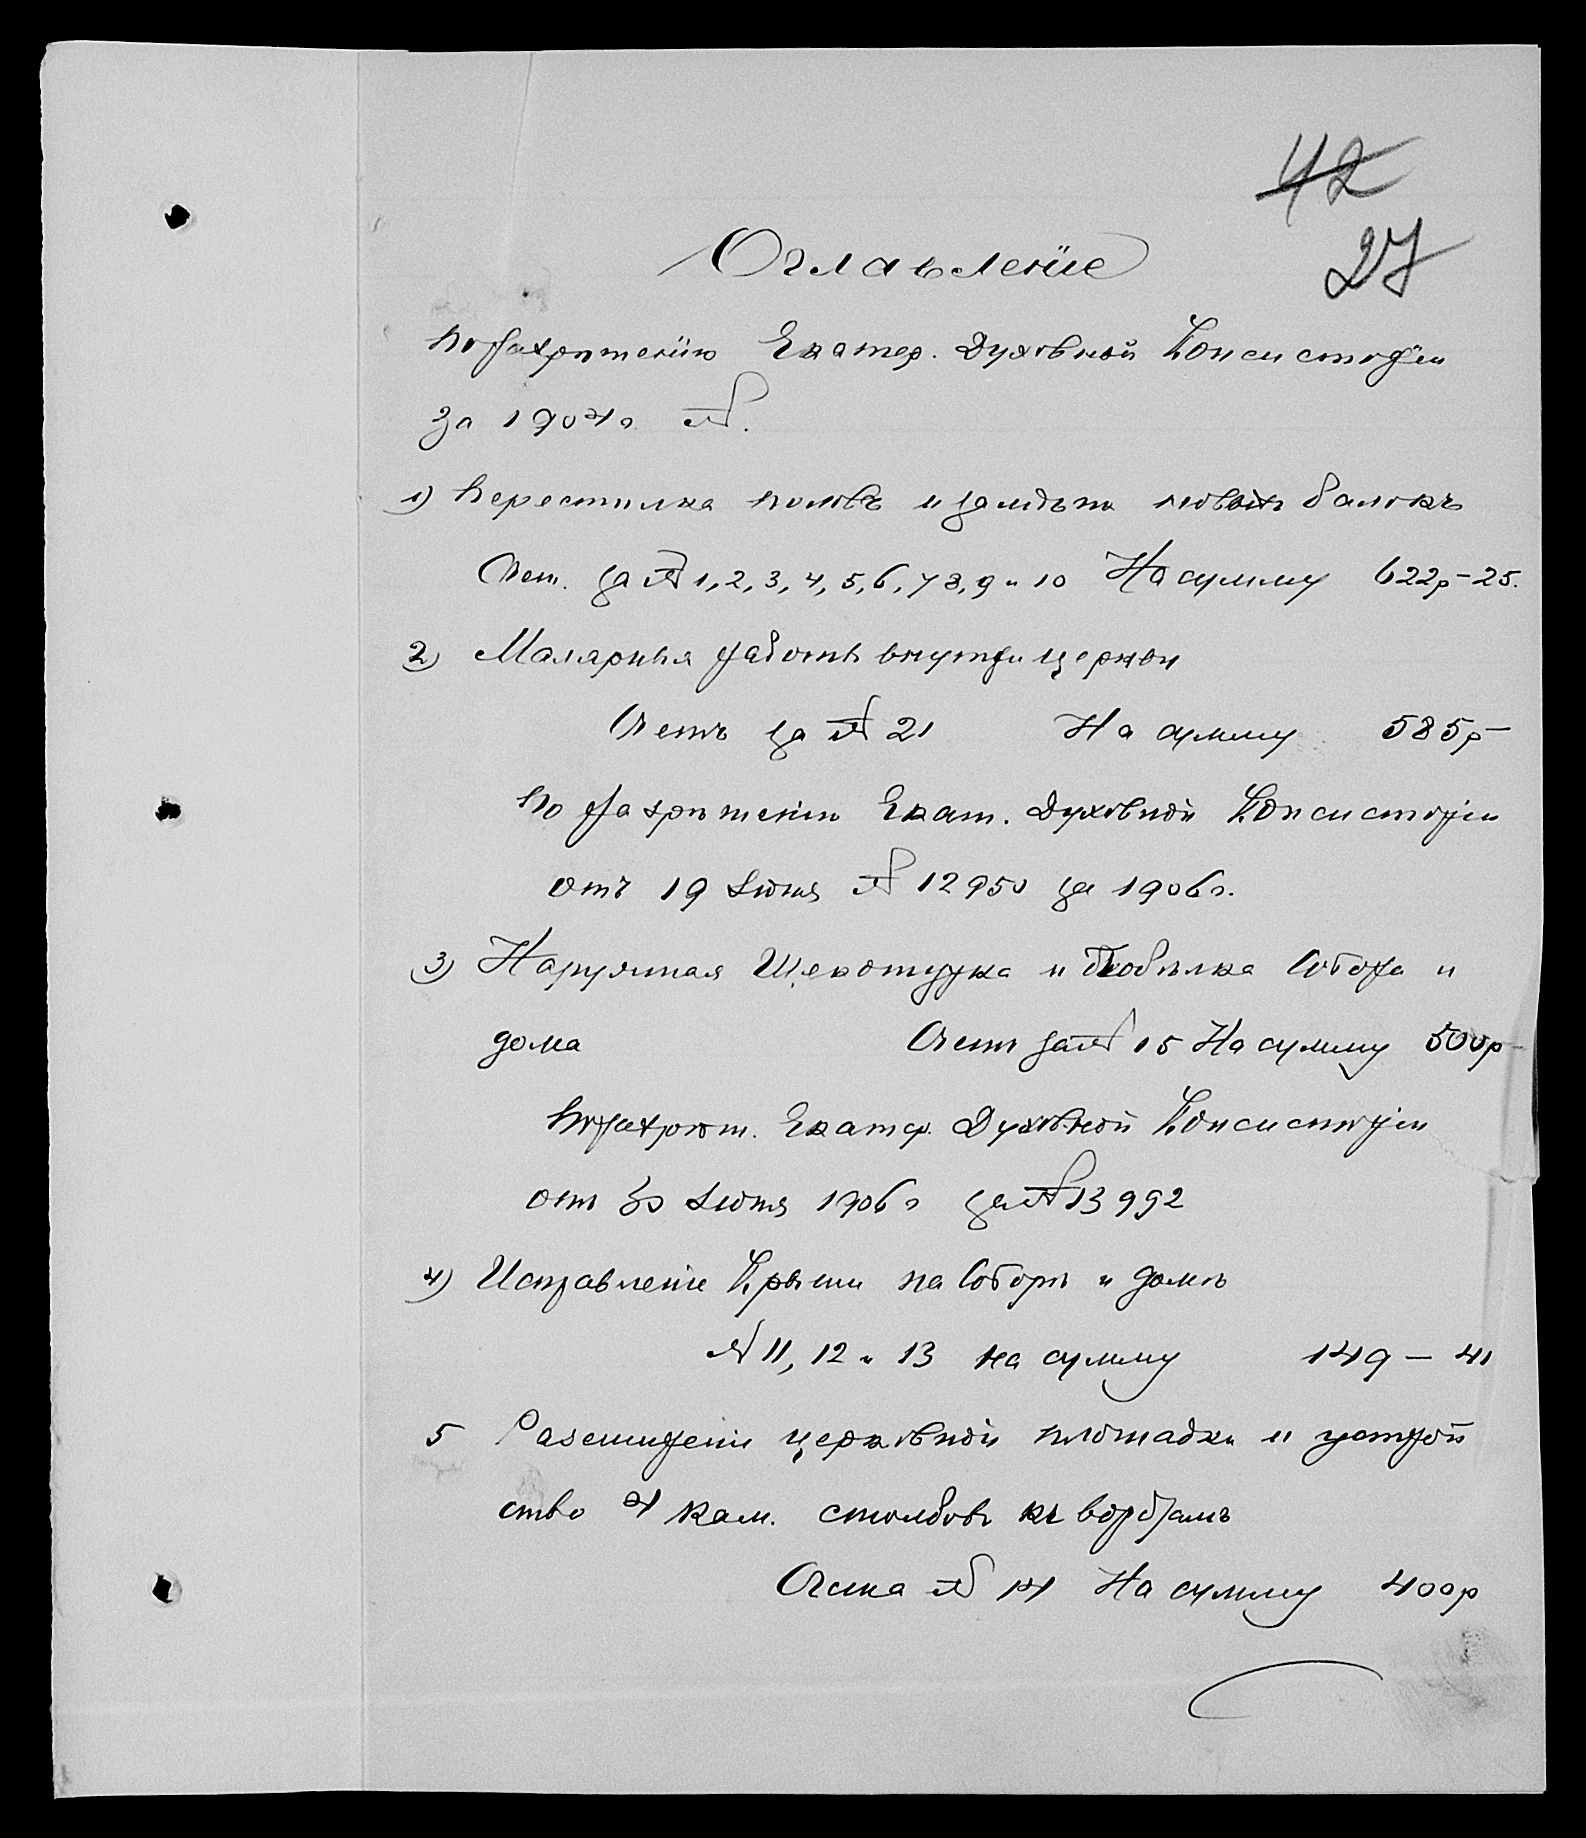 42
27
Оглавленіе
По разрѣшенію Екатер. Духовной Консисторіи
за 1904 г. №.
1) Перестилка половъ и задѣлка новыхъ балокъ
Счет. за № 1, 2, 3, 4, 5, 6, 7 8, 9 и 10 На сумму 622р–25.
2) Малярныя работы внутри церкви
Счетъ за № 21 На сумму 585р–
По разрѣшенію Екат. Духовной Консисторіи
отъ 19 Іюня № 12950 за 1906 г.
3) Наружная Щекотурка и побѣлка Собора и
дома Счетъ за № 15 На сумму 500р–
По разрѣш. Екатер. Духовной Консисторіи
отъ 30 Іюня 1906 г за № 13992
4) Исправленіе Крыши на Соборѣ и домѣ
№ 11, 12 и 13 на сумму 149 – 41
5 Разширеніе церковной площадки и устрой
ство 4 кам. столбовъ къ воротамъ
Счета № 14 На сумму 400р